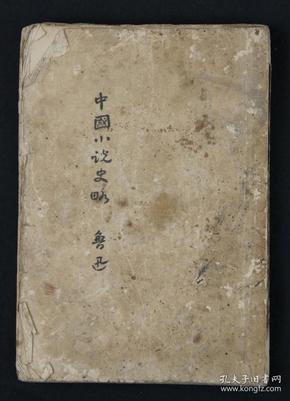 中國小说史略 魯迅
孔夫子旧书网